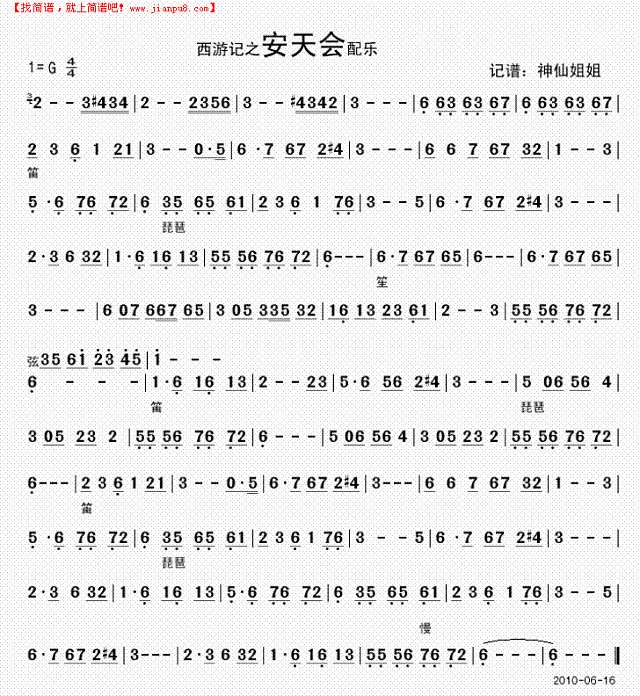 【找简谱，就上简谱吧！www.jianpu8.com】
西游记之安天会配乐
1=G 4/4
记谱：神仙姐姐
3 2 - - 3#434|2 - - 2356|3 - - #4342|3 - - -|6 63 63 67|6 63 63 67|
2 3 6 1 21|3 - - 0·5|6 ·7 67 2#4|3 - - -|6 6 7 67 32|1 - - 3|
笛
5 ·6 76 72|6 35 65 61|2 3 6 1 76|3 - - 5|6 ·7 67 2#4|3 - - -|
琵琶
2·3 6 32|1·6 16 13|55 56 76 72|6---|6·7 67 65|6---|6·7 67 65|
笙
3 - - -|6 07 667 65|3 05 335 32|16 13 23 61|2 - - 3|55 56 76 72|
弦35 61 23 45|1 - - -
6 - - -|1·6 16 13|2 - - 23|5·6 56 2#4|3 - - -|5 06 56 4|
笛 琵琶
3 05 23 2|55 56 76 72|6 - - -|5 06 56 4|3 05 23 2|55 56 76 72|
6---|2 3 6 1 21|3 - - 0·5|6·7 67 2#4|3 - - -|6 6 7 67 32|1 - - 3|
笛
5 ·6 76 72|6 35 65 61|2 3 6 1 76|3 - - 5|6 ·7 67 2#4|3 - - -|
琵琶
2·3 6 32|1·6 16 13|5·6 76 72|6 35 65 61|2 3 6 1 76|3 - - 5|
慢
6·7 67 2#4|3---|2·3 6 32|1·6 16 13|55 56 76 72|6 - - -|6 - - -‖
2010-06-16